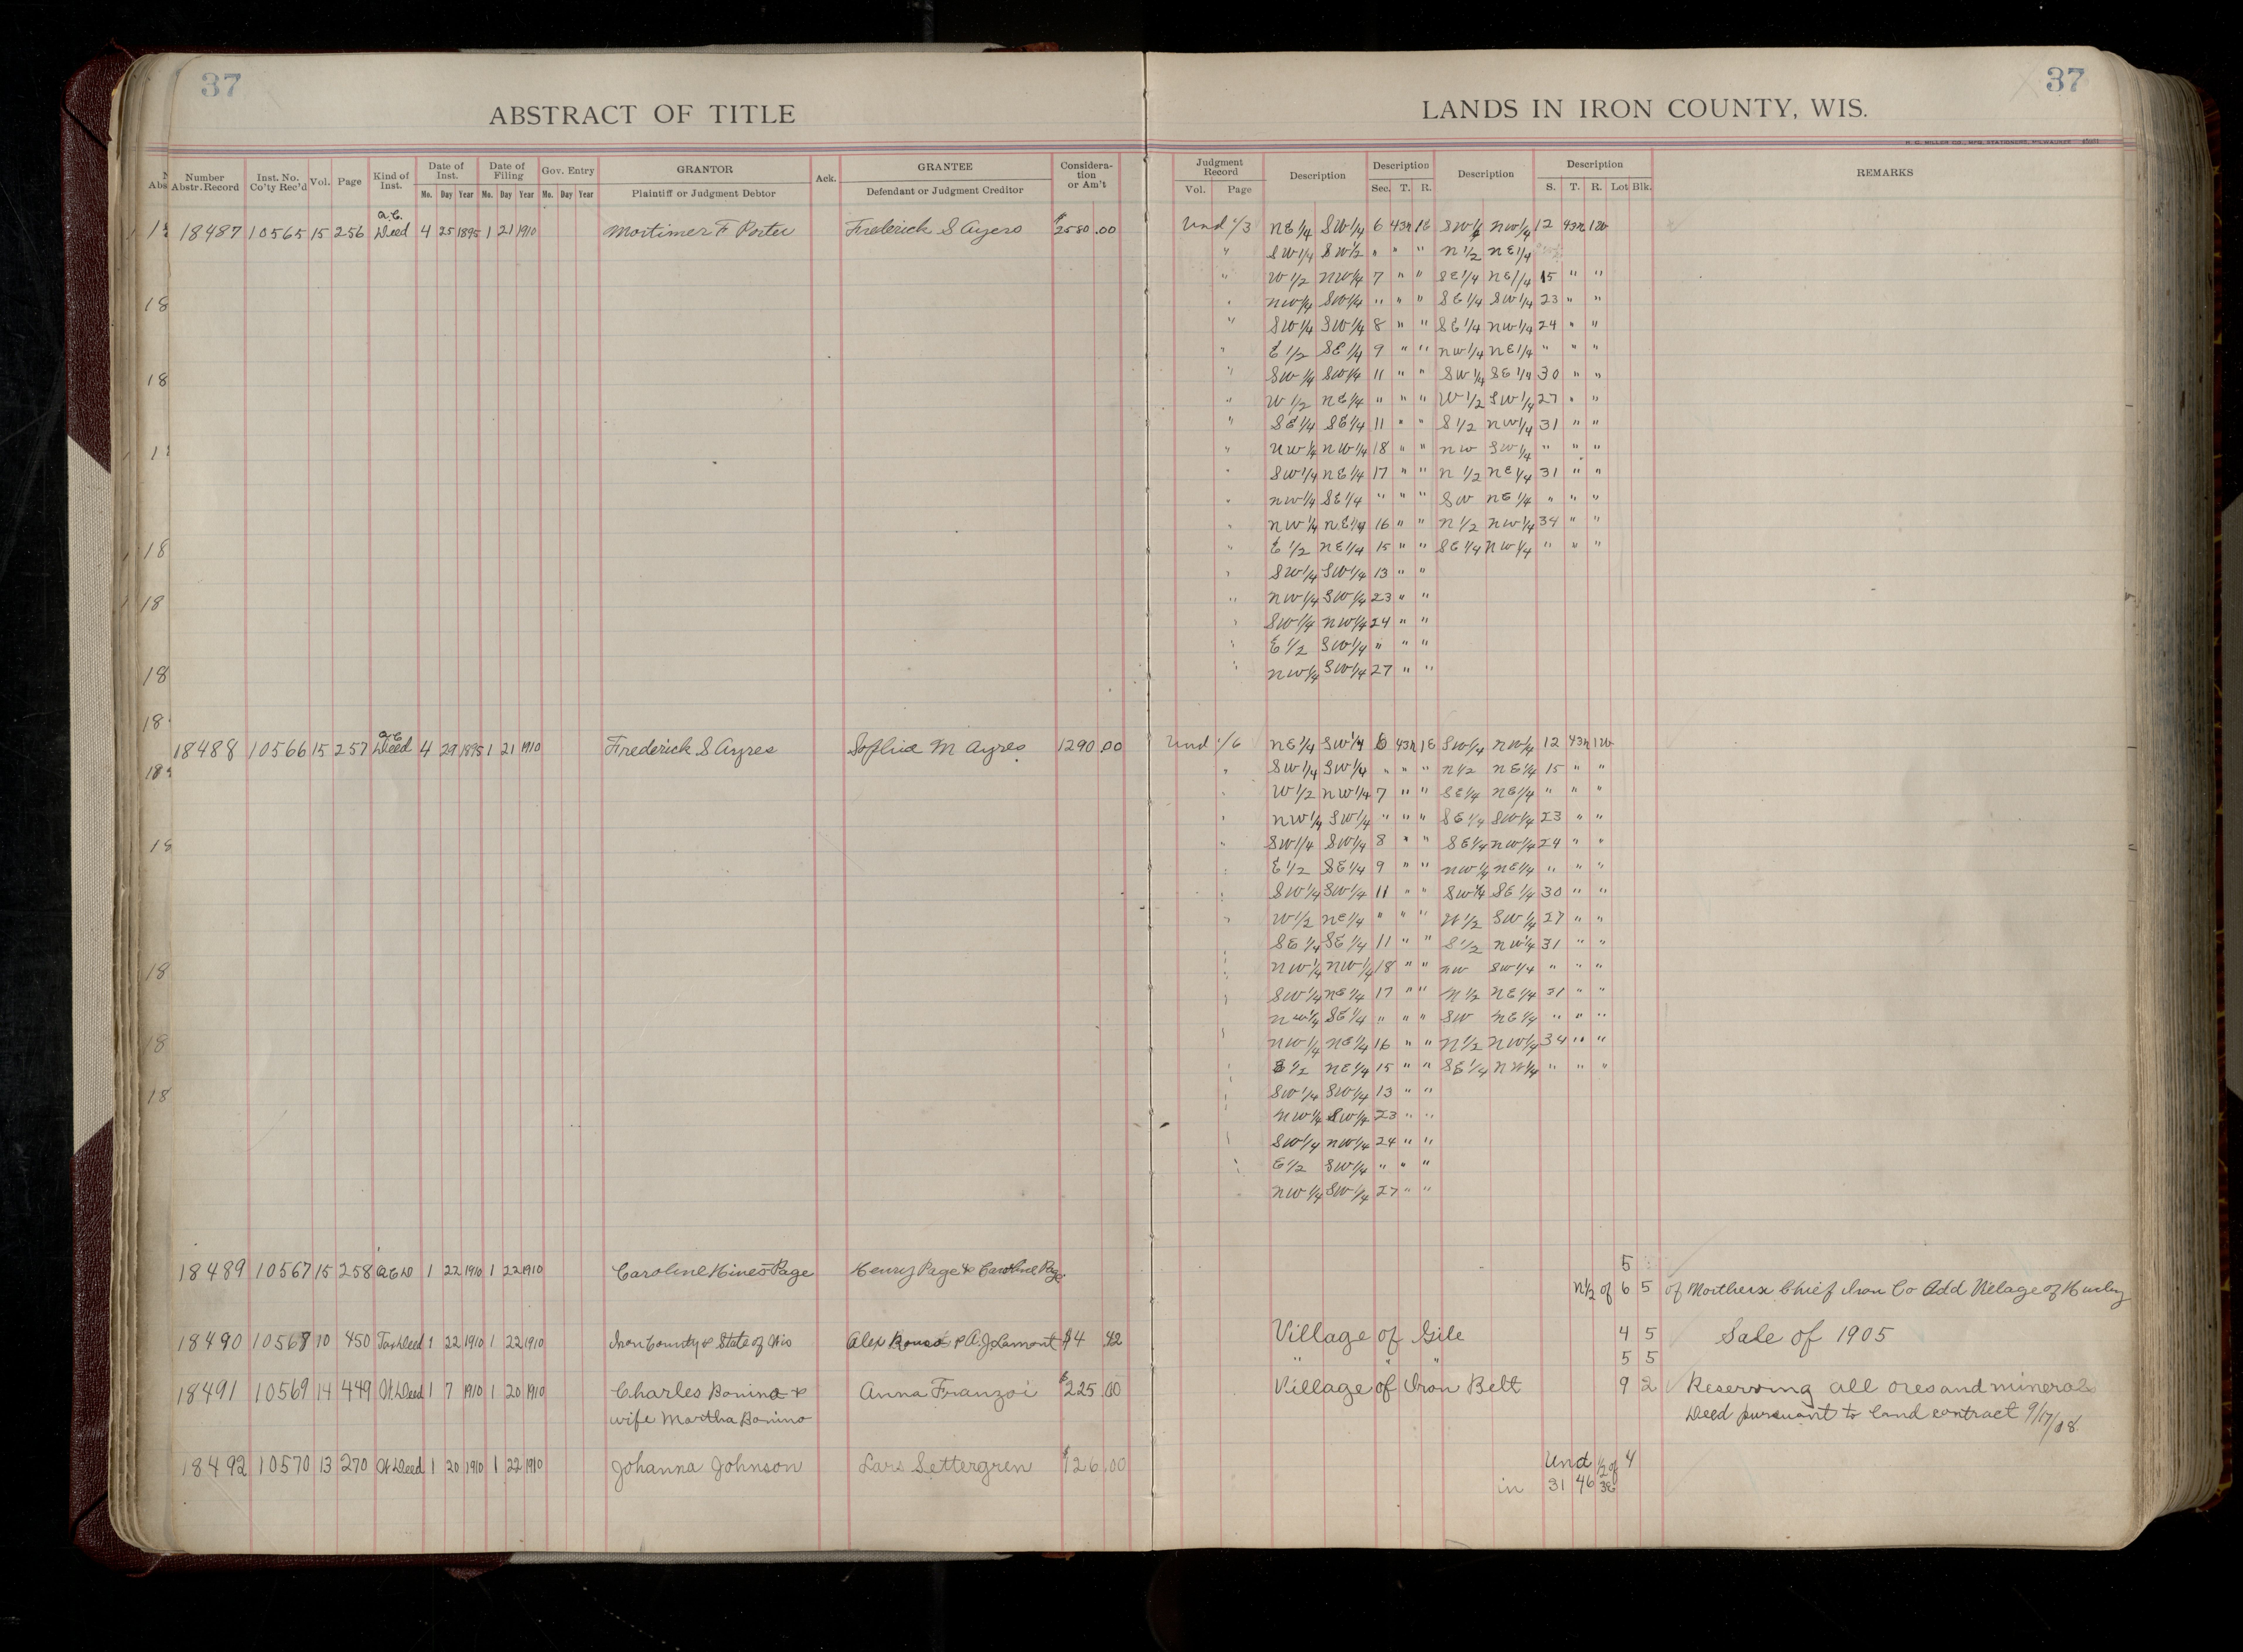 37
37
ABSTRACT OF TITLE
LANDS IN IRON COUNTY, WIS.
Number Abstr. Record
Inst. No. Co'ty Rec'd
Vol.
Page
Kind of Inst.
Date of Inst.
Mo. Day Year
Date of Filing
Mo. Day Year
Gov. Entry
Mo. Day Year
GRANTOR
Plaintiff or Judgment Debtor
Ack.
GRANTEE
Defendant or Judgment Creditor
Considera-tion or Am't
Judgment Record
Vol. Page
Description
Description
Sec. T. R.
Description
Description
S. T. R. Lot Blk.
REMARKS
18487 10565 15 256 Q.C. Deed 4 25 1895 1 21 1910 Mortimer F Porter Frederick S Ayers $2580.00 Und 1/3 NE 1/4 SW 1/4 6 43N 1E SW 1/4 NW 1/4 12 43N 1W
" SW 1/4 SW 1/2 " " " N 1/2 NE 1/4
" W 1/2 NW 1/4 7 " " SE 1/4 NE 1/4 15 " "
" NW 1/4 SW 1/4 " " " SE 1/4 SW 1/4 23 " "
" SW 1/4 SW 1/4 8 " " SE 1/4 NW 1/4 24 " "
" E 1/2 SE 1/4 9 " " NW 1/4 NE 1/4 " " "
" SW 1/4 SW 1/4 11 " " SW 1/4 SE 1/4 30 " "
" W 1/2 NE 1/4 " " " W 1/2 SW 1/4 27 " "
" SE 1/4 SE 1/4 11 " " S 1/2 NW 1/4 31 " "
" NW 1/4 NW 1/4 18 " " NW SW 1/4 " " "
" SW 1/4 NE 1/4 17 " " N 1/2 NE 1/4 31 " "
" NW 1/4 SE 1/4 " " " SW NE 1/4 " " "
" NW 1/4 NE 1/4 16 " " N 1/2 NW 1/4 34 " "
" E 1/2 NE 1/4 15 " " SE 1/4 NW 1/4 " " "
" SW 1/4 SW 1/4 13 " "
" NW 1/4 SW 1/4 23 " "
" SW 1/4 NW 1/4 24 " "
" E 1/2 SW 1/4 " " "
" NW 1/4 SW 1/4 27 " "
18488 10566 15 257 Q.C. Deed 4 29 1895 1 21 1910 Frederick S Ayres Sophia M Ayres 1290.00 Und 1/6 NE 1/4 SW 1/4 6 43N 1E SW 1/4 NW 1/4 12 43N 1W
" SW 1/4 SW 1/4 " " " N 1/2 NE 1/4 15 " "
" W 1/2 NW 1/4 7 " " SE 1/4 NE 1/4 " " "
" NW 1/4 SW 1/4 " " " SE 1/4 SW 1/4 23 " "
" SW 1/4 SW 1/4 8 " " SE 1/4 NW 1/4 24 " "
" E 1/2 SE 1/4 9 " " NW 1/4 NE 1/4 " " "
" SW 1/4 SW 1/4 11 " " SW 1/4 SE 1/4 30 " "
" W 1/2 NE 1/4 " " " W 1/2 SW 1/4 27 " "
SE 1/4 SE 1/4 11 " " S 1/2 NW 1/4 31 " "
" NW 1/4 NW 1/4 18 " " NW SW 1/4 " " "
" SW 1/4 NE 1/4 17 " " N 1/2 NE 1/4 31 " "
NW 1/4 SE 1/4 " " " SW NE 1/4 " " "
" NW 1/4 NE 1/4 16 " " N 1/2 NW 1/4 34 " "
" E 1/2 NE 1/4 15 " " SE 1/4 NW 1/4 " " "
" SW 1/4 SW 1/4 13 " "
NW 1/4 SW 1/4 23 " "
" SW 1/4 NW 1/4 24 " "
" E 1/2 SW 1/4 " " "
NW 1/4 SW 1/4 27 " "
5
18489 10567 15 258 Q C D 1 22 1910 1 22 1910 Caroline Hines Page Henry Page & Caroline Page
N 1/2 of 6 5 of Northern Chief Iron Co Add Village of Hurley
18490 10568 10 450 Tax Deed 1 22 1910 1 22 1910 Iron County & State of Wis Alex & A. J. Lamont $4 42 Village of Gile 4 5 Sale of 1905
" " " 5 5
18491 10569 14 449 W. Deed 1 7 1910 1 20 1910 Charles Bonino & Anna Franzoi $225.00 Village of Iron Belt 9 2 Reserving all ores and minerals
wife Martha Bonino Deed pursuant to land contract 9/17/08.
18492 10570 13 270 W Deed 1 20 1910 1 22 1910 Johanna Johnson Lars Settergren $126.00 Und 1/2 of 4
in 31 46 3E